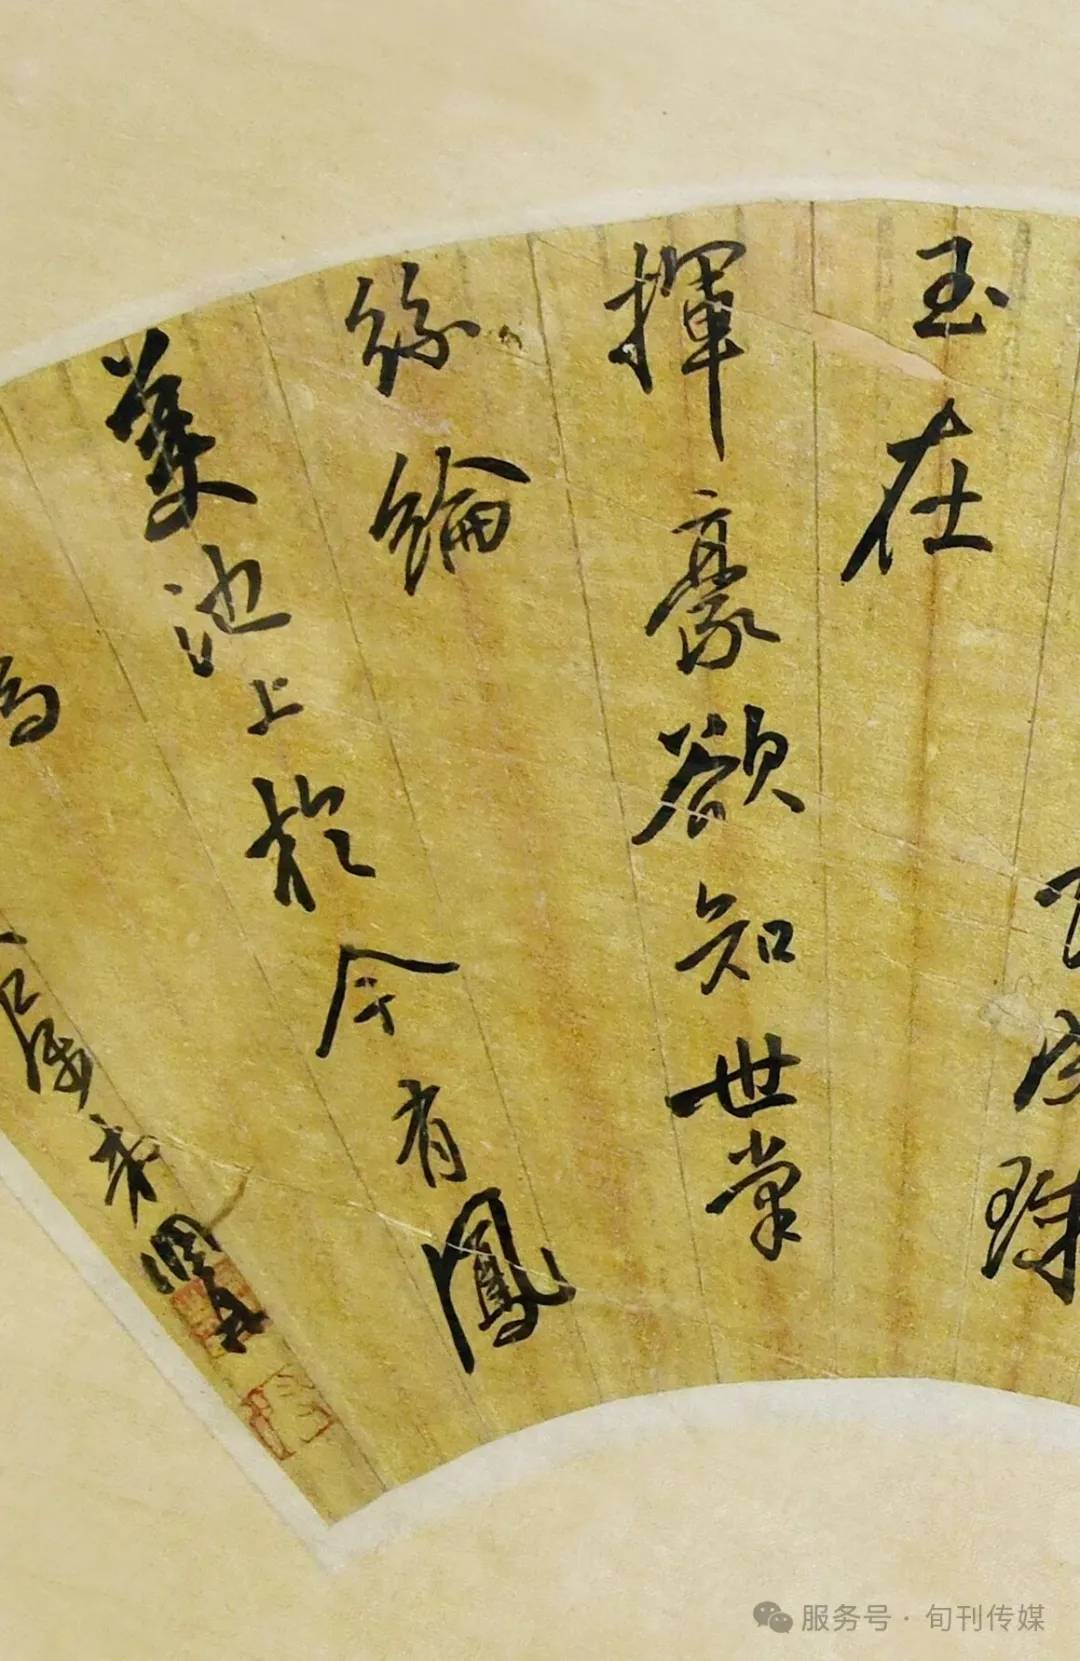 成珠
玉在
揮豪欲知世掌
絲綸
美池上於今有鳳
服务号 · 旬刊传媒